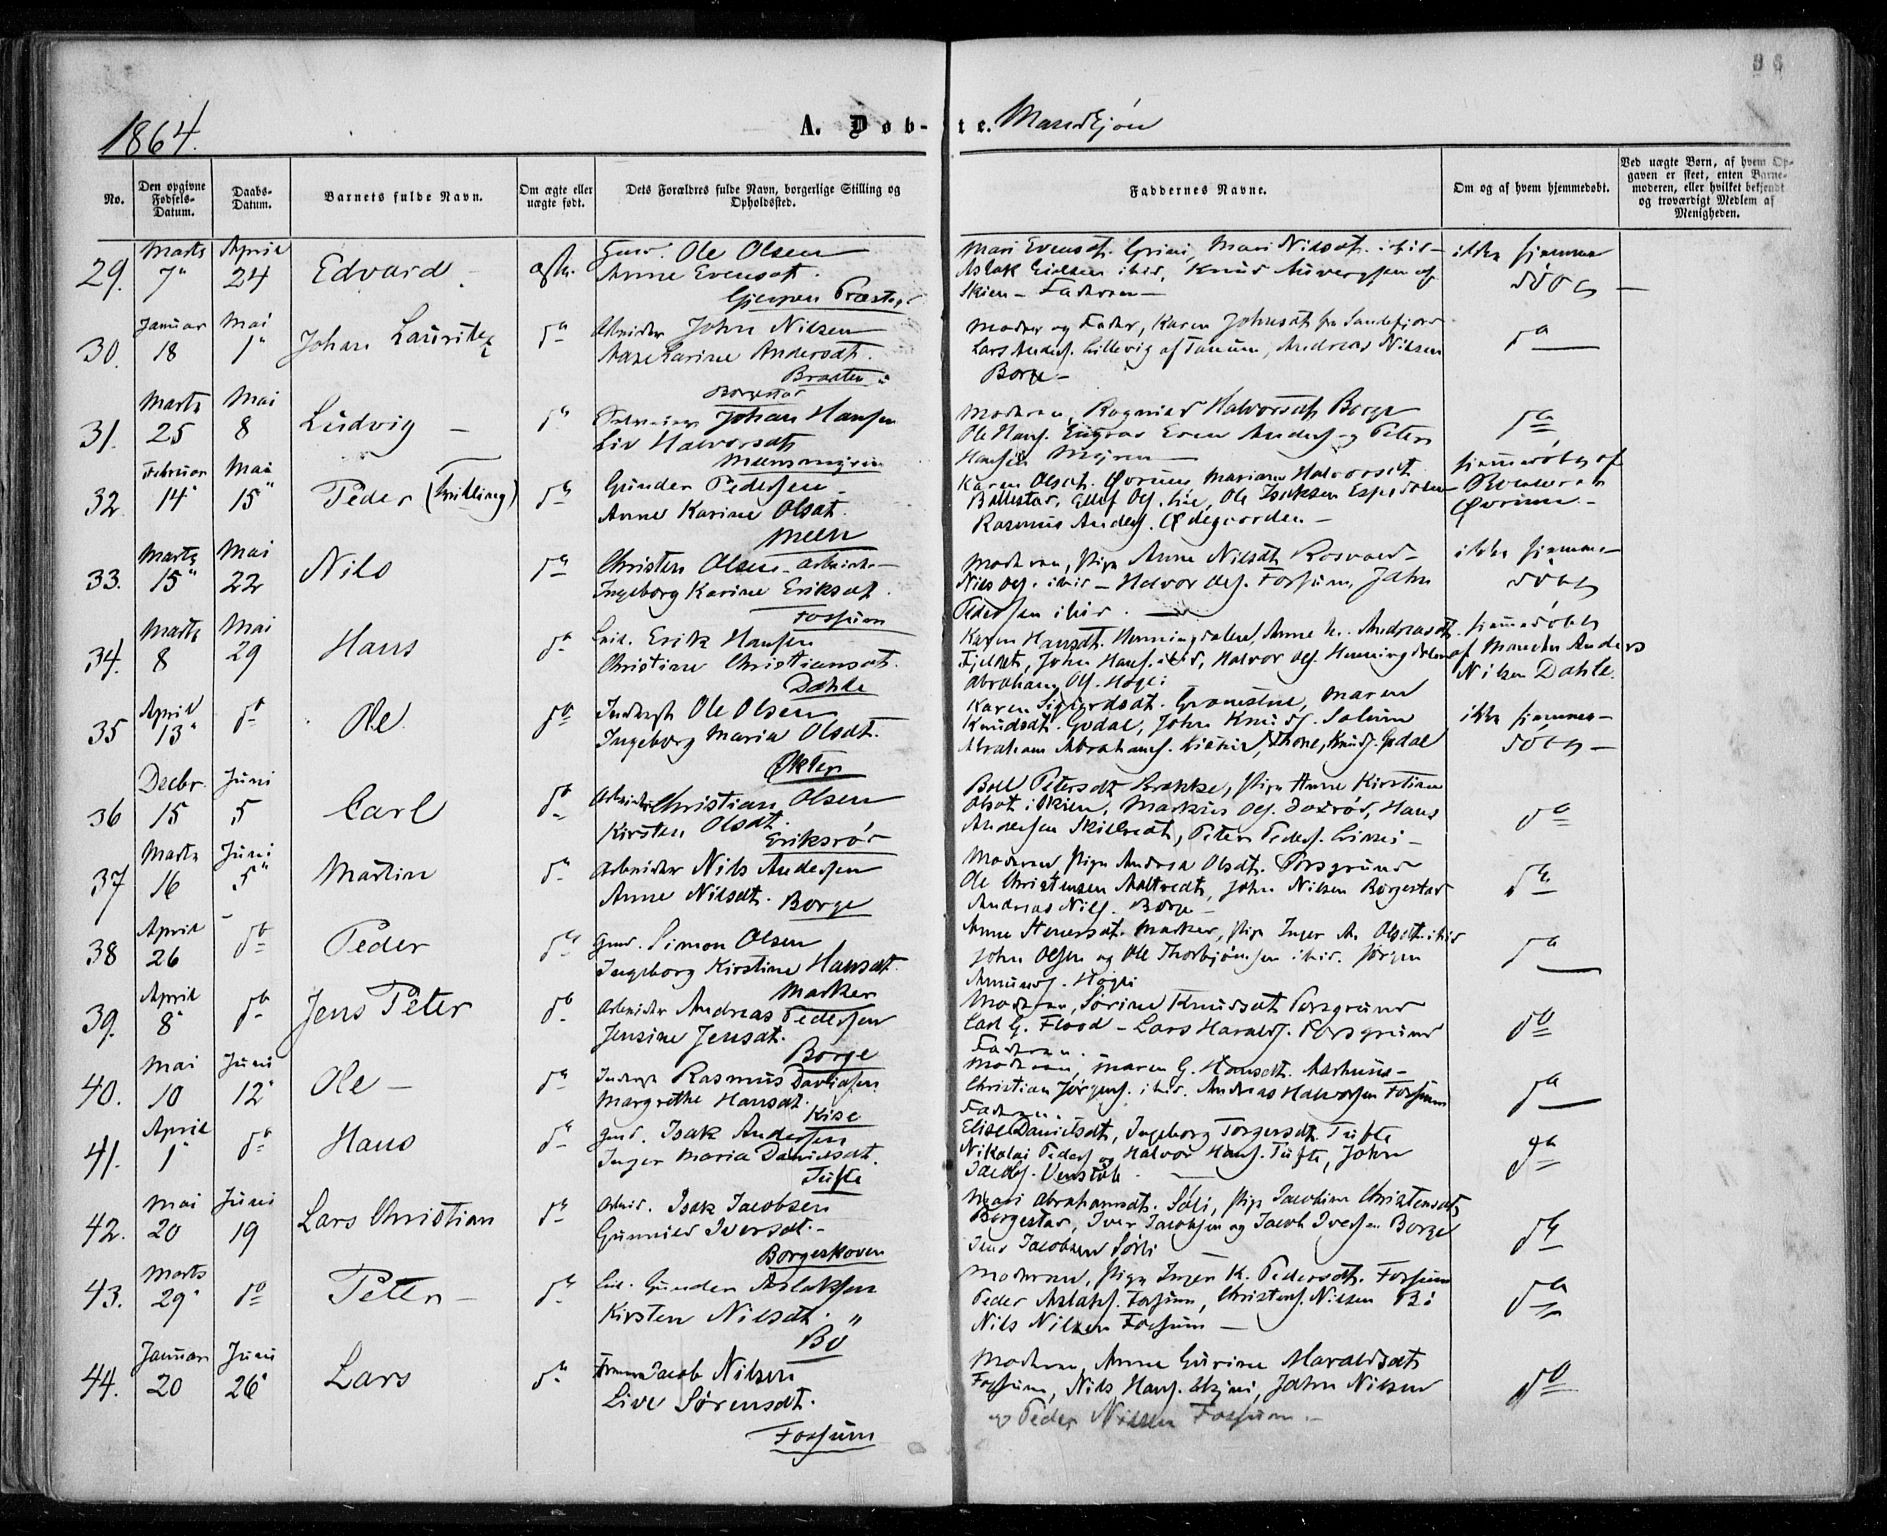 36
1864.
A. Døb-te. Mandkjøn
No.
Den opgivne Fødsels-Datum.
Daabs-Datum.
Barnets fulde Navn.
Om ægte eller uægte født.
Dets Forældres fulde Navn, borgerlige Stilling og Opholdssted.
Faddernes Navne.
Om og af hvem hjemmedøbt.
Ved uægte Børn, af hvem Opgaven er skeet, enten Barnemoderen, eller hvilket bekjendt og troværdigt Medlem af Menigheden.
29. Marts 7 April 24 Edvard ægte
Gmd. Ole Olsen
Anne Evensdt.
Gjerpen Præsteg.
Mari Evensdt. Grini, Mari Nilsdt. ibid
Aslak ibid, Knud af
Skien - Faderen -
ikke hjemme
døbt
30. Januar 18 Mai 1 Johan Lauritz do
Arbeider John Nilsen
Aaze Karine Andersdt.
Braaten
Moder og Fader, Karen Johnsdt fra Sandefjord
Lars Anders. Lillevig af Tanum, Andreas Nilsen
Borge -
do
31. Marts 25 Mai 8 Ludvig - do
Borgestad
Johan Hansen
Liv Halvorsdt
Moderen, Ragnild Halvorsdt Borge
Ole Hans. Even Anders. og Peter
Hansen Myren
do
32. Februar 14 Mai 15 Peder (Tvilling) do
Mensmyren
Gunder Pedersen
Anne Karine Olsdt.
Meen
Karen Olsdt. Øvrum Maria Halvorsdt
Ballestad, Ellef Ols. Lie, Ole Isaksen
Rasmus Anders. Ødegaarden -
hjemmedøbt af
Øvrum -
33. Marts 15 Mai 22 Nils do
Christen Olsen - Arbeider
Ingeborg Karine Eriksdt.
Fossum
Moderen, Pige Anne Nilsdt
Nils Ols. ibid - Halvor Ols. Fossum, John
Pedersen ibid.
ikke hjemme-
døbt
34. Marts 8 Mai 29 Hans do
Erik Hansen
Christine Christiansdt.
Dahle
Karen Hansdt. Henningdalen, Anne Andreasdt
John Hans. ibid, Halvor Ols. Henningdalen
Abraham Ols.
hjemmedøbt
af Anders
Nilsen Dahle.
35 April 13 do Ole. do
Inderst Ole Olsen
Ingeborg Maria Olsdt.
Økter
Karen Sigurdsdt. Maren
Knudsdt. Godal, John Knuds. Solum
Abraham Abrahams. Knuds. Godal
ikke hjemme-
døbt -
36 Decbr. 15 Juni 5 Carl do
Arbeider Christian Olsen
Kirsten Olsdt.
Eriksrød
Boel Petersdt Brekke, Pige Anne Kirstine
Olsdt i Skien, Markus Ols. Hans
Andersen Skilbredt, Peter Peders.
do
37 Marts 16 Juni 5 Martin do
Arbeider Nils Andersen
Anne Nilsdt. Borge
Moderen Pige Andrea Olsdt. Porsgrund
Ole Christensen John Nilsen Borgestad
Andreas Nils. Borge -
do
38 April 26 do Peder do
Gmd. Simon Olsen
Ingeborg Kirstine Hansdt.
Marker
Anne Marker, Pige Inger Olsdt. ibid
John Olsen og Ole Thorbjørnsen ibid. Jørgen
Amunds.
do
39. April 8 do Jens Peter do
Arbeider Andreas Pedersen
Jensine Jensdt.
Borge
Moderen, Sørine Knudsdt Porsgrund
Carl G. Flood - Lars Haralds. Porsgrund
Faderen.
do
40. Mai 10 Juni 12 Ole - do
Inderst Rasmus Davidsen
Margrethe Hansdt.
Kise
Moderen, Maren G. Hansdt.
Christian Jørgens. ibid. Andreas Halvorsen Fossum
Faderen.
do
41. April 1 do Hans do
Gmd. Isak Andersen
Inger Maria Danielsdt.
Tufte
Elise Danielsdt, Ingeborg Torgersdt. Tufte
Nikolai Peders og Halvor Hans. Tufte, John
Jacobs. Venstøb
do
42. Mai 20 Juni 19 Lars Christian do
Arbeid. Isak Jacobsen
Gunnild Iversdt. -
Borgeskoven
Mari Abrahamsdt. Pige Jacobine Christensdt
Borgestad, Iver Jacobsen og Jacob Iversen Borge
Jens Jacobsen Sørli
do
43. Marts 29 do Peter - do
Gunder Aslaksen
Kirsten Nilsdt. "
Bø
Moderen, Pige Inger K. Pedersdt. Fossum
Peder Aslaks. Fossum, Christen Nilsen Bø
Nils Nilsen Fossum -
do
44. Januar 20 Juni 26 Lars do
Jacob Nilsen
Live Sørensdt.
Fossum
Moderen, Anne Gurine Haraldsdt
Fossum, Nils Hans. John Nilsen
og Peder Nilsen Fossum. -
do